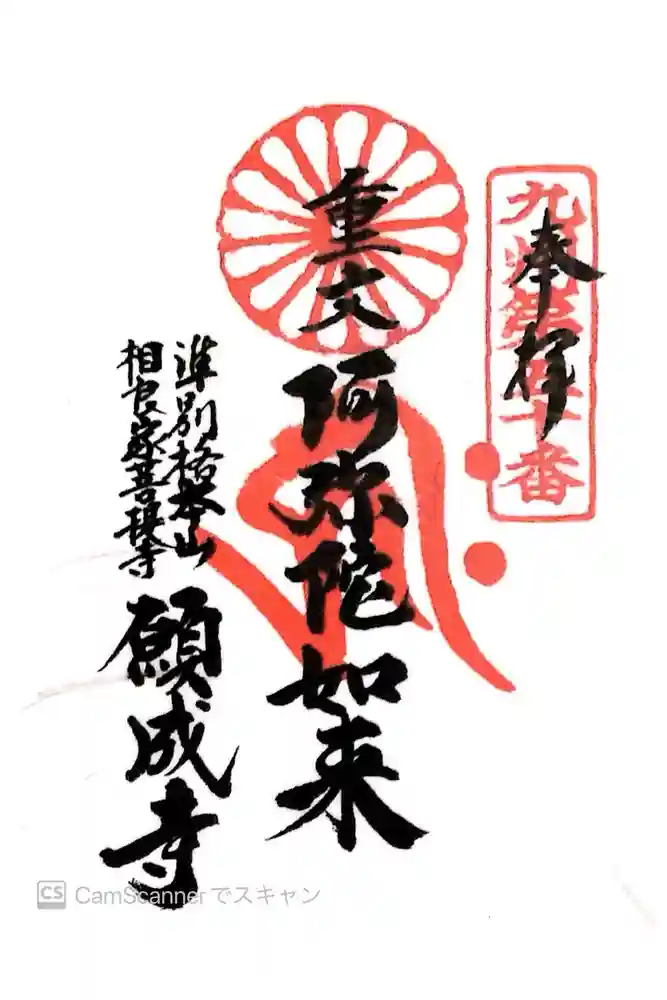 奉拝
九州第四十番
重文
阿弥陀如来
準別格本山
相良家菩提寺
願成寺
CS CamScannerでスキャン